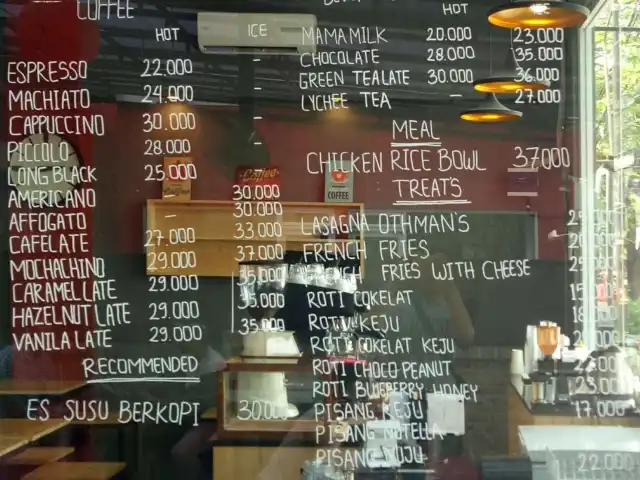 COFFEE
HOT ICE
ESPRESSO 22.000 -
MACHIATO 24.000 -
CAPPUCCINO 30.000 -
PICCOLO 28.000 -
LONG BLACK 25.000 30.000
AMERICANO - 30.000
AFFOGATO - 33.000
CAFELATE 27.000 37.000
MOCHACHINO 29.000 35.000
CARAMEL LATE 29.000 35.000
HAZELNUT LATE 29.000 35.000
VANILA LATE 29.000
RECOMMENDED
ES SUSU BERKOPI 30.000
HOT
MAMAMILK 20.000 23.000
CHOCOLATE 28.000 35.000
GREEN TEALATE 30.000 36.000
LYCHEE TEA - 27.000
MEAL
CHICKEN RICE BOWL 37000
TREAT'S
LASAGNA OTHMAN'S
FRENCH FRIES
FRIES WITH CHEESE
ROTI COKELAT
ROTI KEJU
ROTI COKELAT KEJU
ROTI CHOCO PEANUT
ROTI BLUEBERRY HONEY 23.000
PISANG KEJU 17.000
PISANG NUTELLA
PISANG 22.000
Coffee
COFFEE